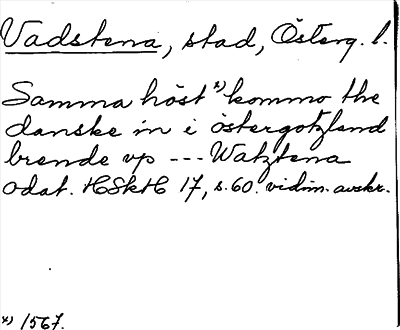 Vadstena, stad, Österg. l.
Samma höst x) kommo the
danske in i östergötzland
brende vp --- Watztena
odat. HSkH 17, s. 60. vidim. avskr.
x) 1567.